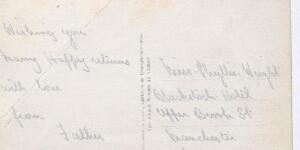 Wishing you
many Happy returns
with love
from
Father
Miss Phyllis Wright
Hotel
Upper Brook St
Manchester